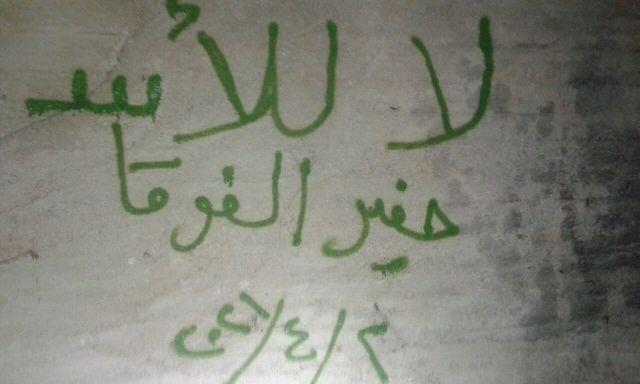 لا للأسد
حفير الفوقا
٢/٤/٢٠٢١